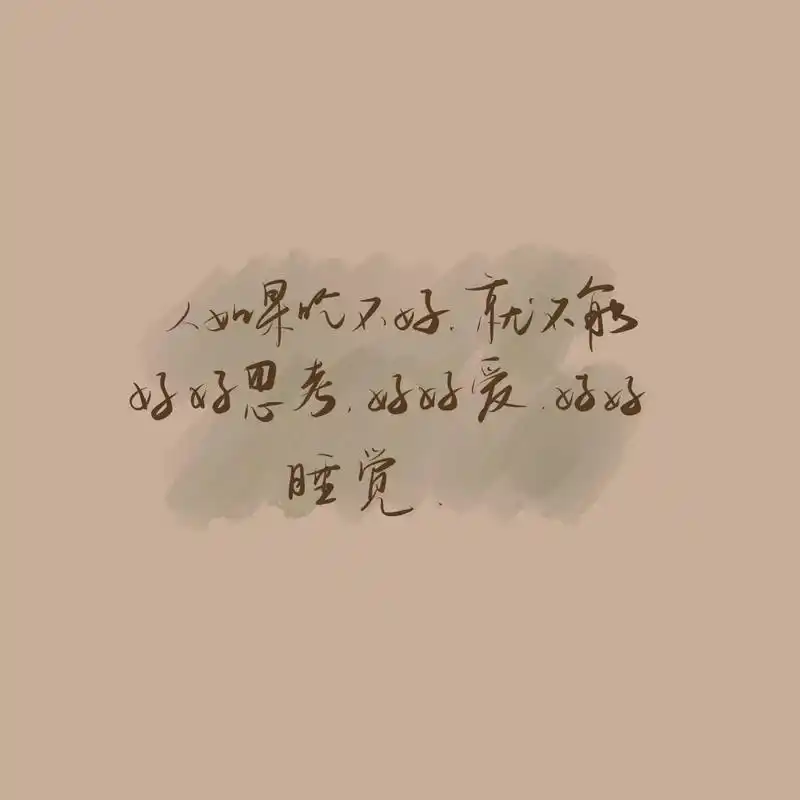 人如果吃不好.就不能
好好思考,好好爱.好好
睡觉.